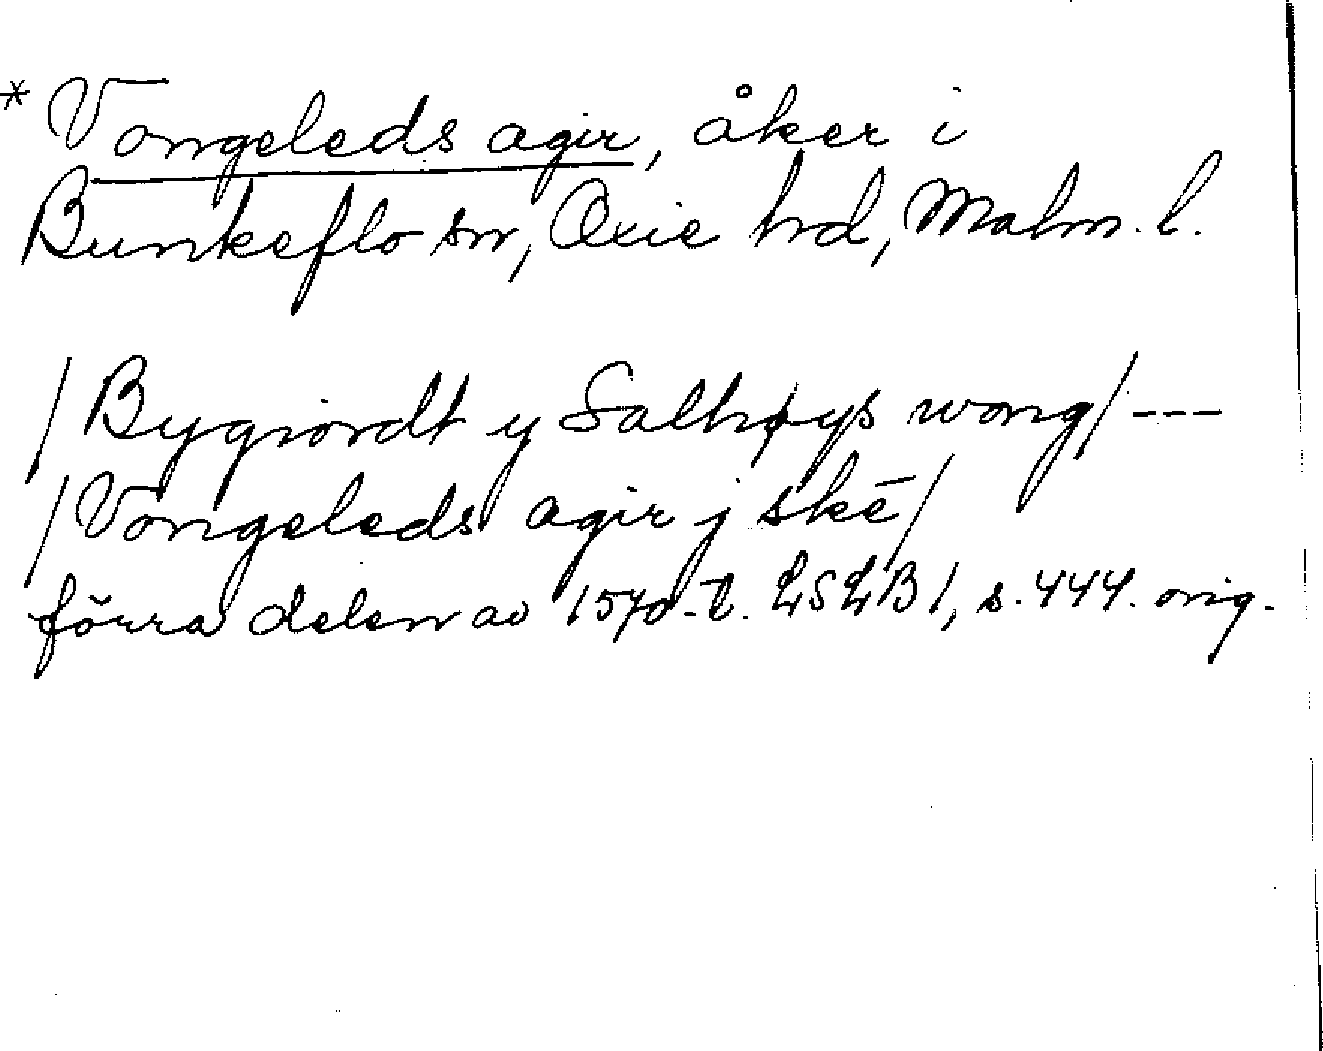 * Vongeleds agir, åker i
Bunkeflo sn, Oxie hd, Malm. l.
/Bygiordt y Salhøys wong/ ---
/Vongeleds agir j skē/
förra delen av 1570-t. LSLB 1, s. 444. orig.